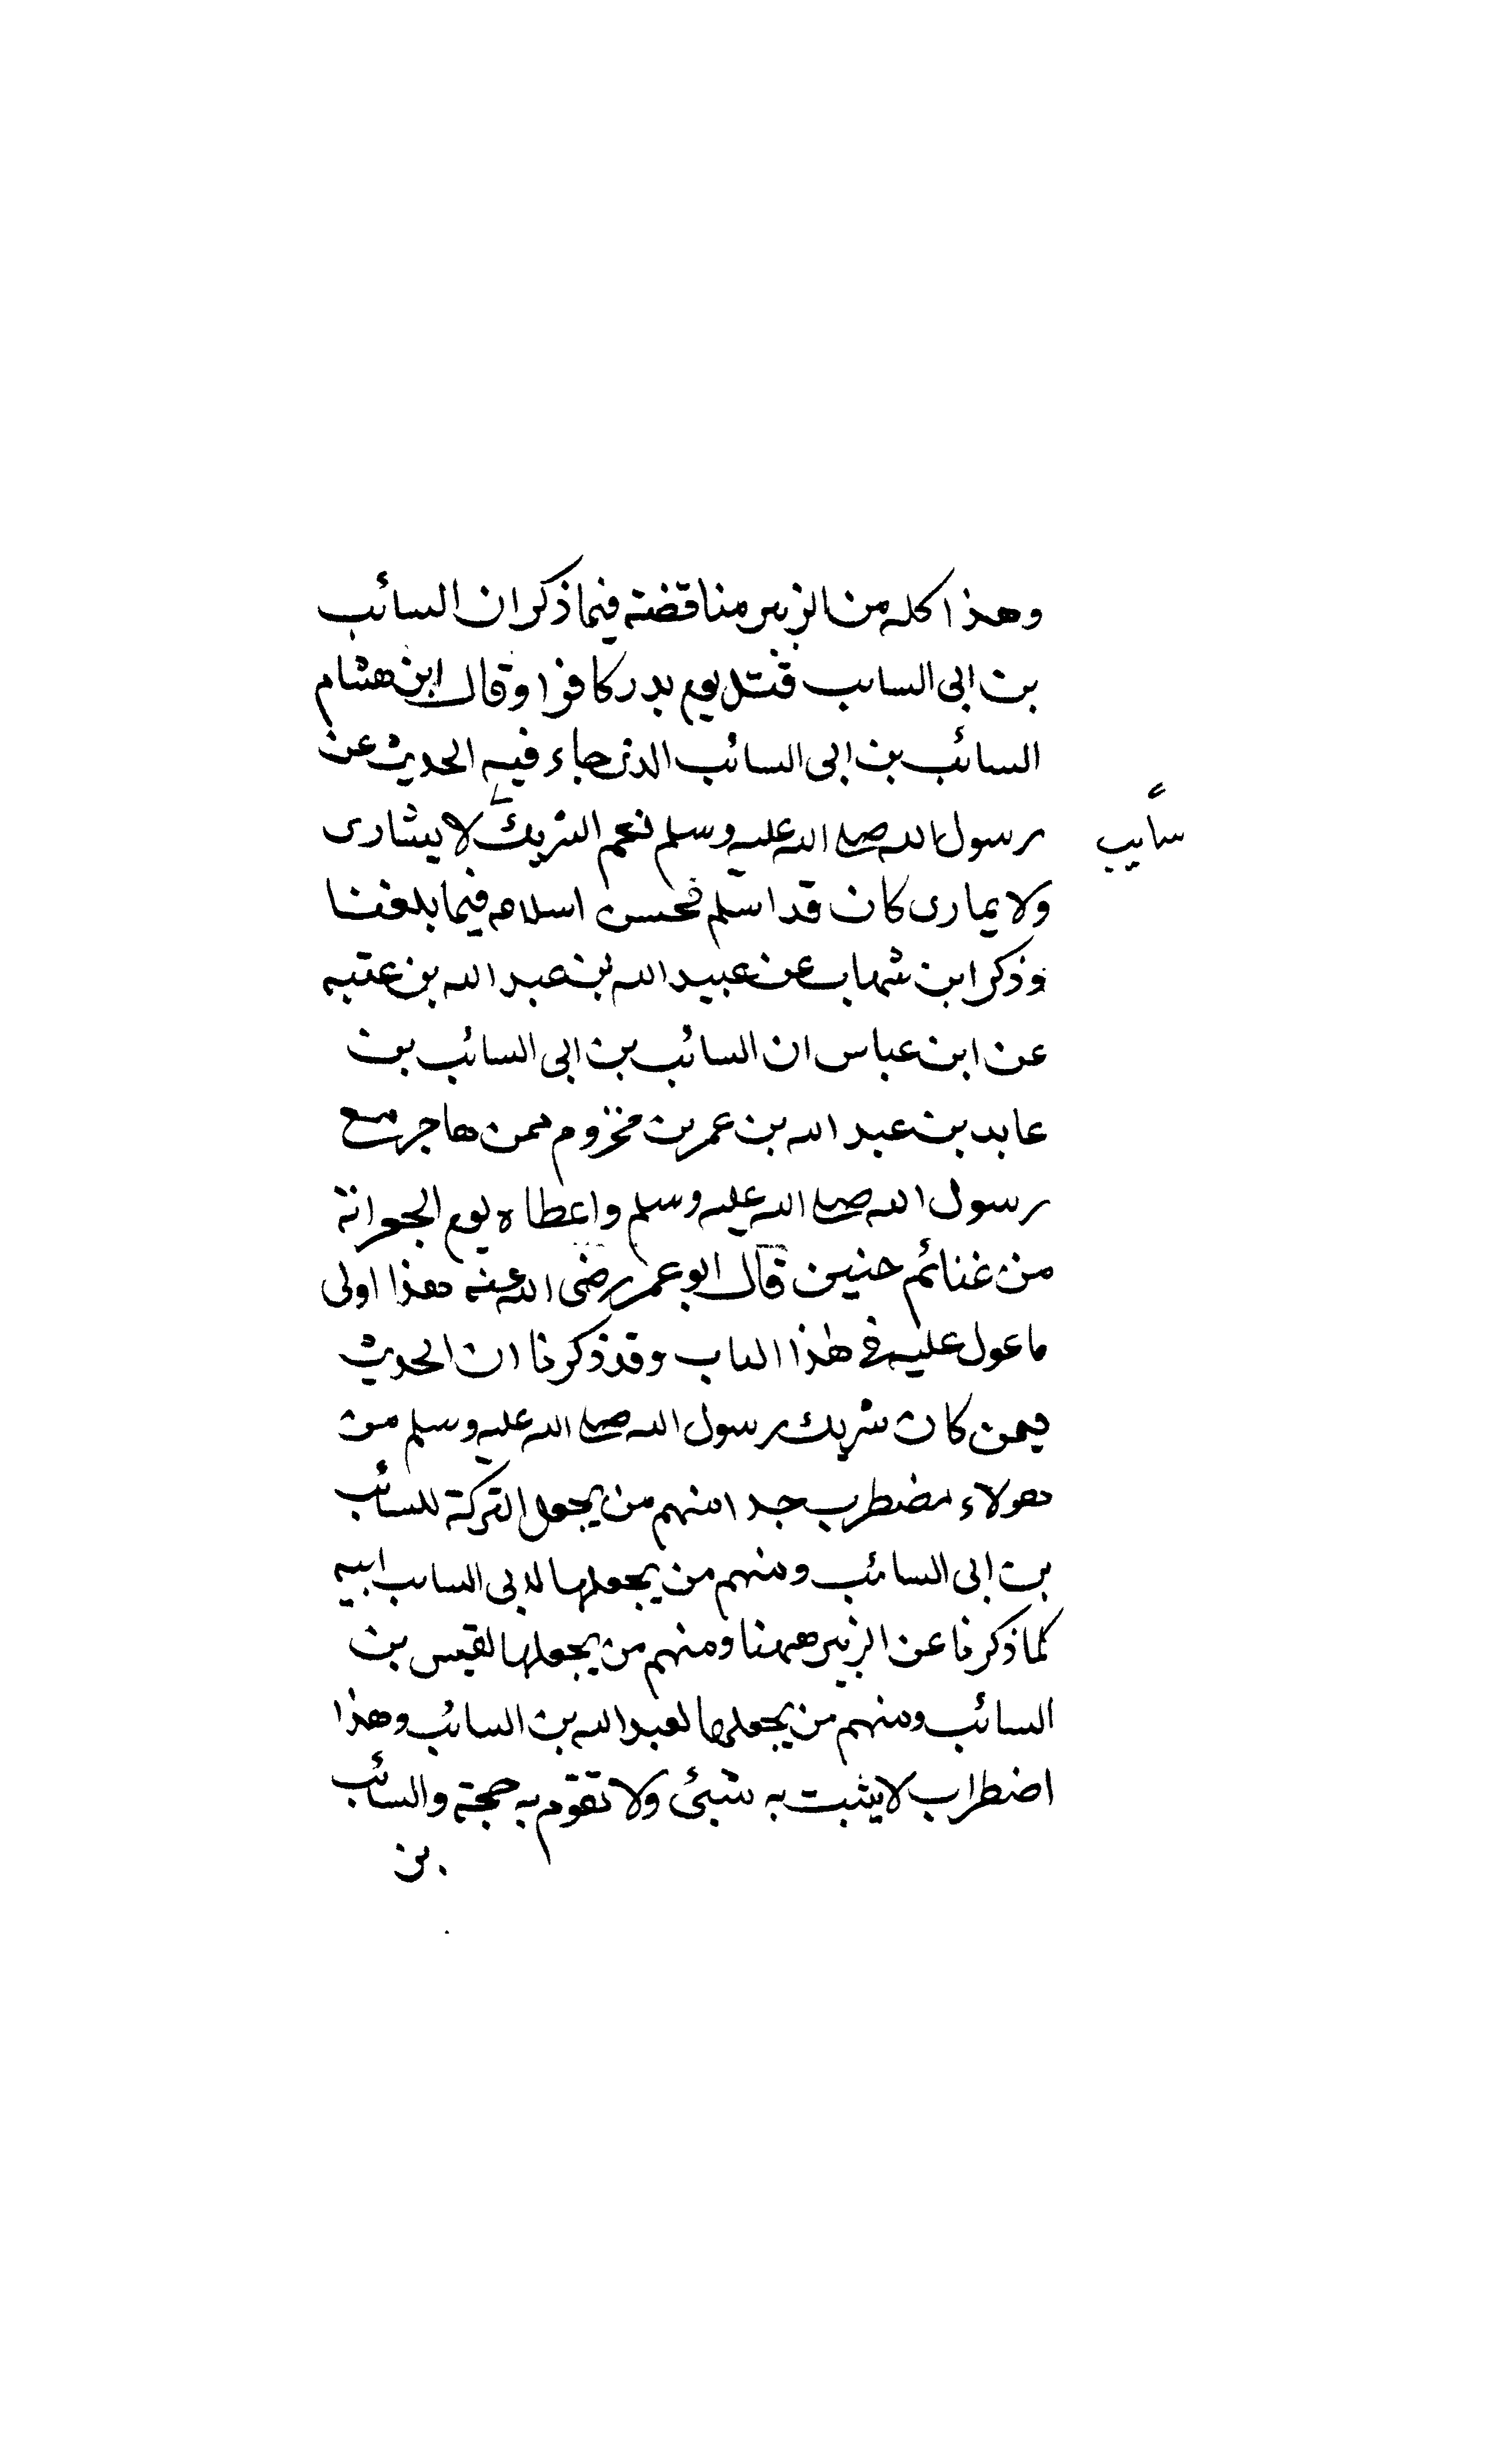 وهذا كله من الزبير مناقضة فيما ذكر ان السائب
بن ابى السائب قتل يوم بدر كافرا وقال ابن هشام
السائب بن ابى السائب الذى جاء فيه الحديث عن
رسول الله صلى الله عليه وسلم نعم الشريك لا يشارى
سايب
ولا يمارى كان قد اسلم فحسن اسلامه فيما بلغنا
وذكر ابن شهاب عن عبيد الله بن عبد الله بن عتبه
عن ابن عباس ان السائب بن ابى السائب بن
عابد بن عبد الله بن عمر بن مخزوم ممن هاجر مع
رسول الله صلى الله عليه وسلم واعطاه يوم الجعرانة
من غنائم حنين قال ابو عمر رضى الله عنه هذا اولى
ما عول عليه فى هذا الباب وقد ذكرنا ان الحديث
فيمن كان شريك رسول الله صلى الله عليه وسلم من
هولاء مضطرب جدا منهم من يجعل الشركة للسائب
بن ابى السائب ومنهم من يجعلها لابى السائب ابيه
كما ذكرنا عن الزبير ههنا ومنهم من يجعلها لقيس بن
السائب ومنهم من يجعلها لعبد الله بن السائب وهذا
اضطراب لا يثبت به شئ ولا تقوم به حجة والسائب
بن